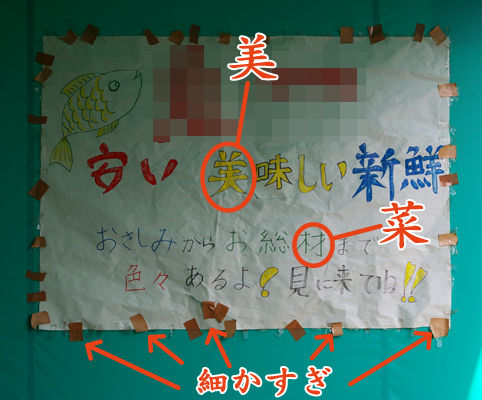 美
安い 美味しい 新鮮
菜
おさしみからお総材まで
色々あるよ!見に来てね!!
細かすぎ